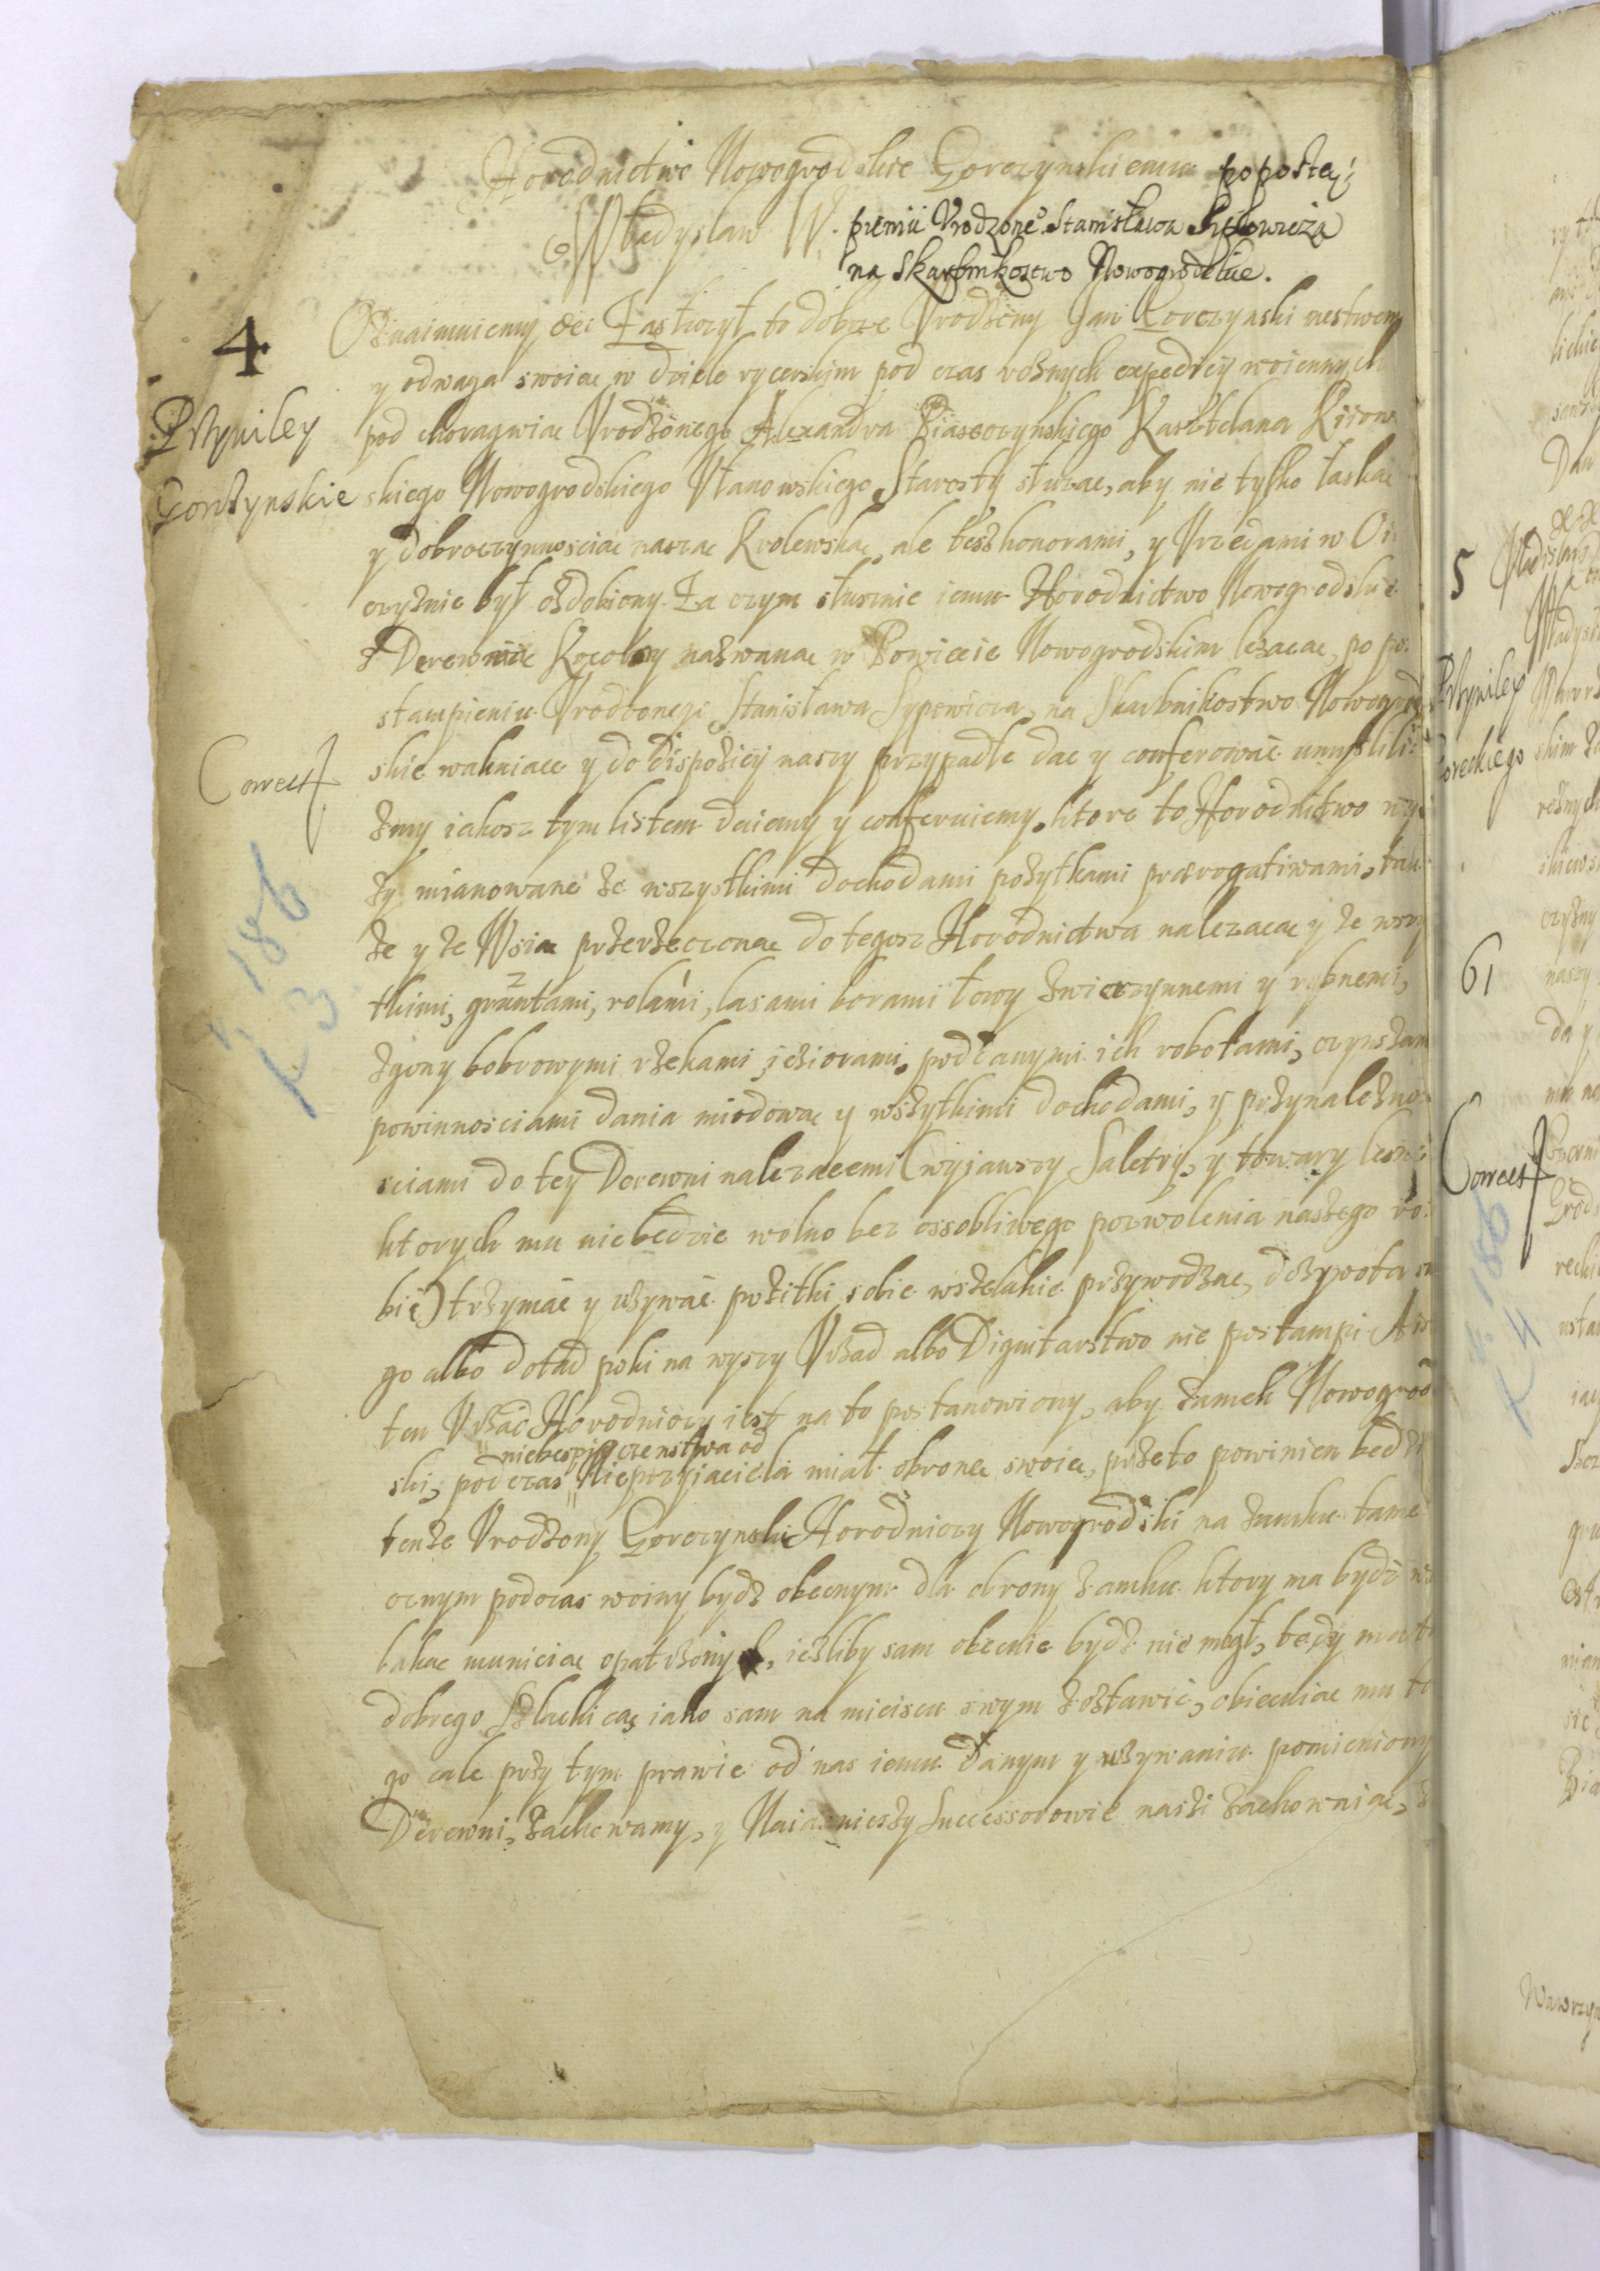 Horodnictwo Nowogrodskie Gorczynskiemu po poste-
Władysław W. pieniu Vrodzone° Stanisława Sypowicza
na Skarbnikostwo Nowogrodskie.
4
Oznaimuiemy etc Zasłużył to dobrze Vrodzony Jan Gorczynski mestwem
y odwaga swoiae w dziele rycerskim pod czas roznych expedicij woiennych
Przywiley
pod choragwiae Vrodzonego Alexandra Piaseczynskiego Kasztelana Kijow
Gorczynskie
skiego Nowogrodskiego Vłanowskiego Starosty służae, aby nie tylko łaskae
y dobroczynnosciae naszae Krolewskae, ale tesz honorami, y Vrzedami w Oi
czyznie był ozdobiony. Za czym słusznie iemu Horodnictwo Nowogrodskie
z Derewniae nazwanae w Powiecie Nowogrodskim lezacae, po po
stampieniu Vrodzonego Stanisława Sypowicza, na Skarbnikostwo Nowogrod
Correct
skie wakuiace y do Dispozicij naszy przypadłe dac y conferowac umyslili
zmy iakosz tym listem daiemy y conferuiemy. ktore to Horodnictwo wy
zy mianowane ze wszystkimi dochodami pożytkami praerogatiwami, tak
ze y ze Wsiae przerzeczonae do tegosz Horodnictwa nalezacae y ze wszy
tkimi, gruntami, rolami, lasami borami łowy zwierzynnemi y rybnemi,
zgony bobrowymi rzekami jeziorami, poddanymi ich robotami, czynszam
powinnosciami dania miodowae y wszytkimi dochodami, y przynalezno
sciami do tey Derewni nalezacemi (wyjawszy Saletry, y towary lesne
ktorych mu niebedzie wolno bez ossobliwego pozwolenia naszego ro
bić) trzymać y uzywać pozitki sobie wszelakie przywodzac, dozywota sw
go albo dotad poki na wyszy Vrzad albo Dignitarstwo nie postampi. A iz
ten Vrzad Horodniczy iest na to postanowiony, aby zamek Nowogrod
niebespieczenstwa od
ski, pod czas Nieprzyiaciela miał obrone swoie, przeto powinien bedzie
tenze Vrodzony Gorczynski Horodniczy Nowogrodski na zamku tame
cznym podczas woiny bydz obecnym dla obrony zamku ktory ma bydz
lakae municiae opatrzony, iezliby sam obecnie bydz nie mogł, tedy ma
dobrego Szlachica, iako sam na mieiscu swym zostawić, obiecuiac mu
go cale przy tym prawie od nas iemu danym y uzywaniu pomieniony
Derewni, zachowamy, y Naiasnieszy Successorowie naszi zachowaiae,
186
K 3
5
Przywiley
Goreckiego
61
Correct
186
K 4